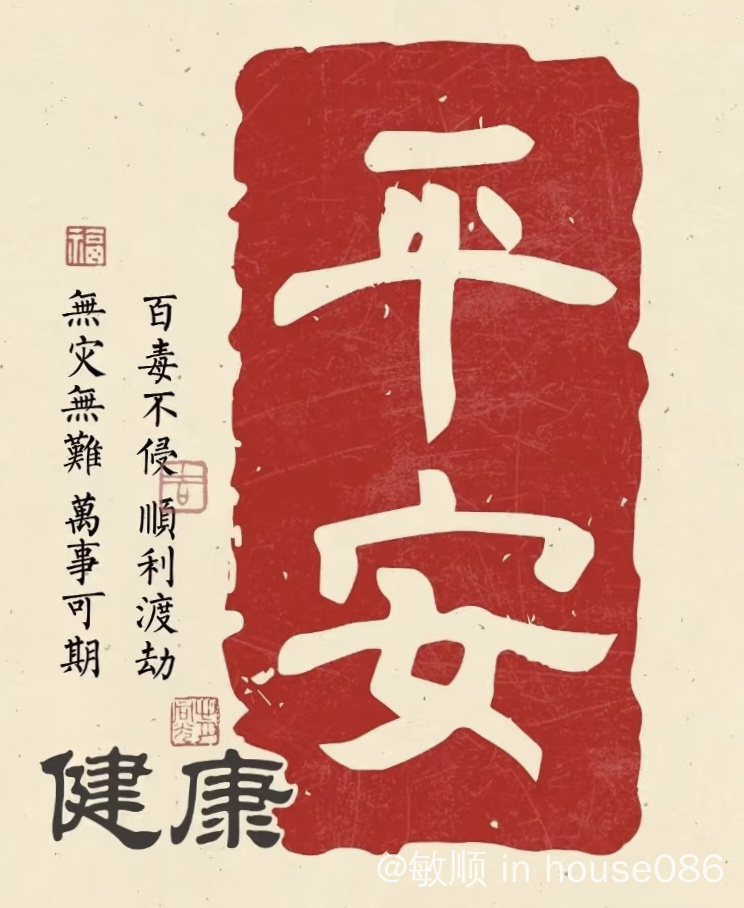 平安
百毒不侵 順利渡劫
無灾無難 萬事可期
健康
福
吉
@敏顺 in house086